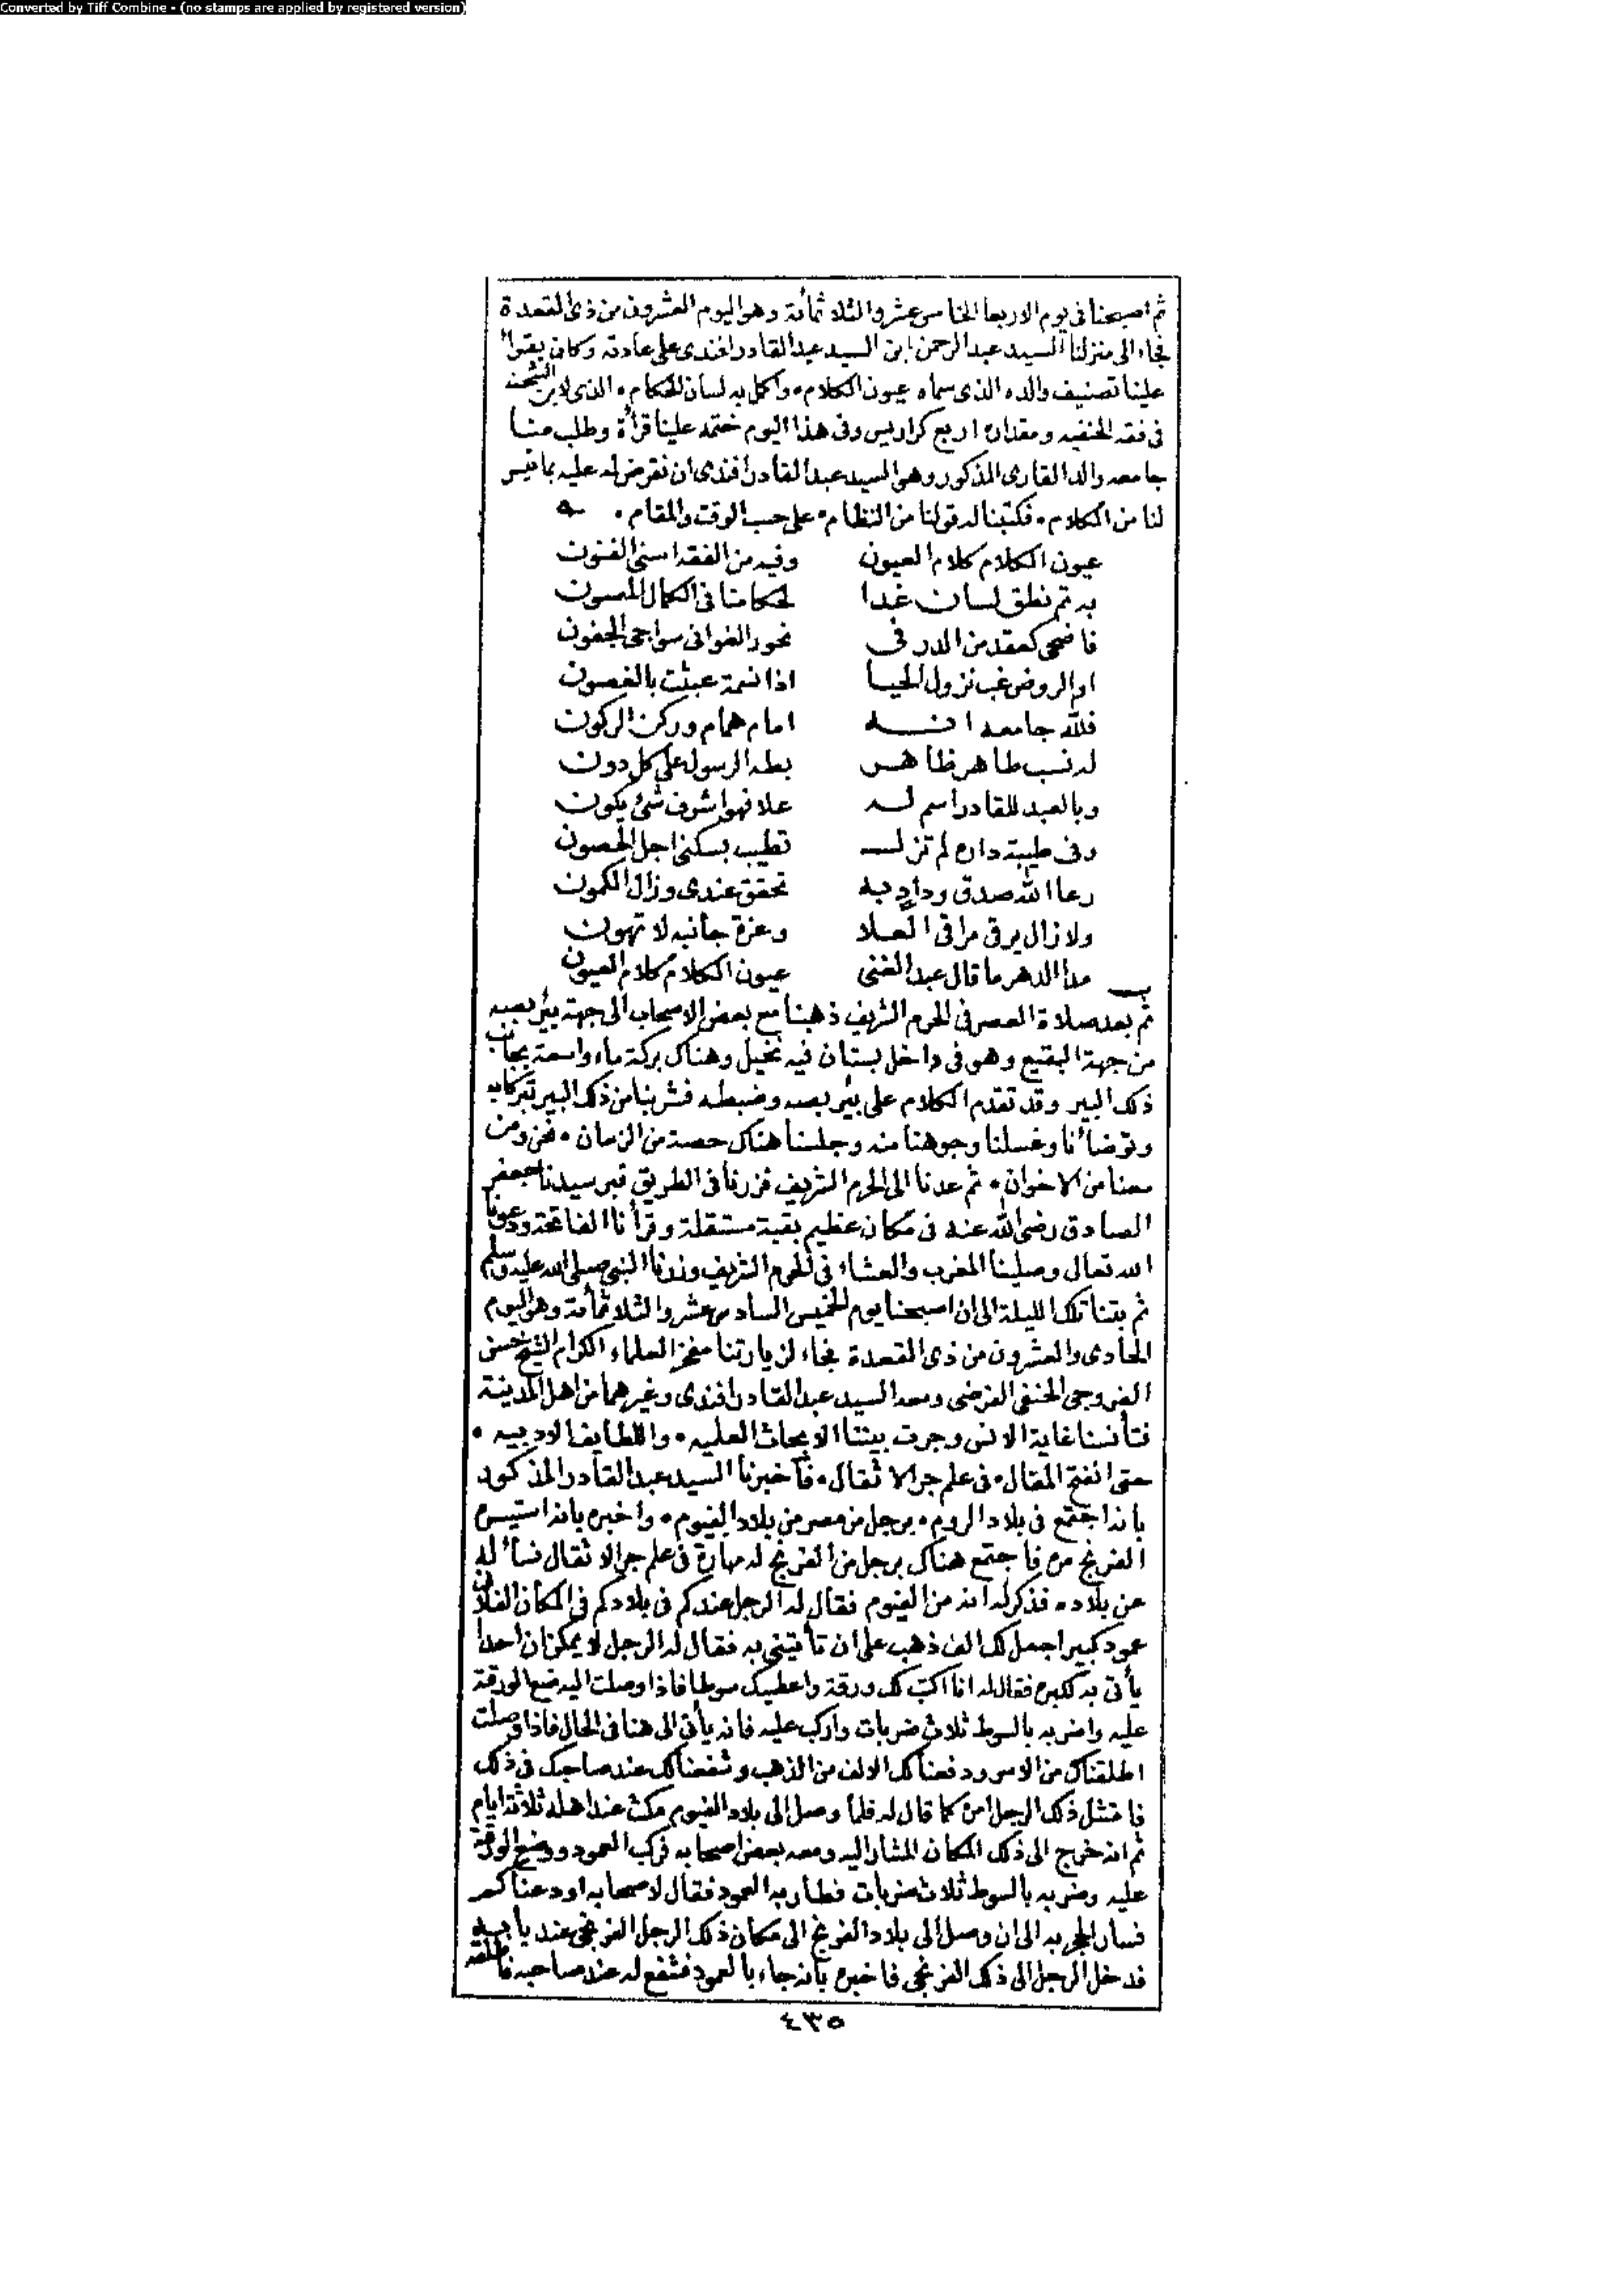 Converted by Tiff Combine - (no stamps are applied by registered version)
ثم اصبحنا فى يوم الاربعا الخامس عشر والثلاثمائة وهو اليوم العشرون من ذى القعدة
فجاء الى منزلنا السيد عبد الرحمن ابن السيد عبد القادر افندى على عادته وكان يقرأ
علينا تصنيف والده الذى سماه عيون الكلام، واكمل به لسان الحكام، الذى لابن الشحنه
فى فقه الحنفيه ومقداره اربع كراريس وفى هذا اليوم ختمه علينا قرأة وطلب منا
جامعه والد القارى المذكور وهو السيد عبد القادر افندى ان نقرض له عليه بما تيسر
لنا من الكلام، فكتبنا له قولنا من النظام، على حسب الوقت والمقام.
عيون الكلام كلام العيون وفيه من الفقه اسنى الفنون
به تم نطق لسان غدا لحكامنا فى الكمال المصون
فاضحى كعقد من الدر فى نحور الغوانى سواجى الجفون
او الروض غب نزول الحيا اذا نسمة عبثت بالغصون
فلله جامعه انه امام همام وركن الركون
له نسب طاهر ظاهر بطه الرسول على كل دون
وبالعبد للقادر اسم له علا فهو اشرف شئ يكون
وفى طيبة داره لم تزل تطيب بسكنى اجل الحصون
رعا الله صدق وداد به تحقق عندى وزال الكمون
ولا زال يرقى مراقى العلا وعزة جانبه لا تهون
مدا الدهر ما قال عبد الغنى عيون الكلام كلام العيون
ثم بعد صلاة العصر فى الحرم الشريف ذهبنا مع بعض الاصحاب الى جهة بئر بصه
من جهة البقيع وهو فى داخل بستان فيه نخيل وهناك بركة ماء واسعة بجانب
ذلك البير وقد تقدم الكلام على بئر بصه وضبطه فشربنا من ذلك البير تبركا به
وتوضأنا وغسلنا وجوهنا منه وجلسنا هناك حصة من الزمان، نحن ومن
معنا من الاخوان، ثم عدنا الى الحرم الشريف فزرنا فى الطريق قبر سيدنا جعفر
الصادق رضى الله عنه فى مكان عظيم بقبة مستقلة وقرأنا الفاتحة ودعونا
الله تعالى وصلينا المغرب والعشاء فى الحرم الشريف وزرنا النبى صلى الله عليه وسلم
ثم بتنا تلك الليلة الى ان اصبحنا يوم الخميس السادس عشر والثلاثمائة وهو اليوم
الحادى والعشرون من ذى القعدة فجاء لزيارتنا مفخر العلماء الكرام الشيخ حسن
الحنفى الفرضى ومعه السيد عبد القادر افندى وغيرهما من اهل المدينة
فتأنسنا غاية الانس وجرت بيننا الابحاث العلميه، واللطايف الادبيه،
حتى انفتح المقال، فى علم جر الاثقال، فأخبرنا السيد عبد القادر المذكور
بانه اجتمع فى بلاد الروم، برجل من مصر من بلاد الفيوم، واخبره بانه استيسره
الفرنج مره فاجتمع هناك برجل من الفرنج له مهارة فى علم جر الاثقال فسأله
عن بلاده، فذكر له انه من الفيوم فقال له الرجل عندكم فى بلادكم فى المكان الفلانى
عمود كبير اجعل لك الف ذهب على ان تأتينى به فقال له الرجل لا يمكن ان احدا
يأتى به لكبره فقال له انا اكتب لك ورقة واعطيك سوطا فاذا وصلت اليه ضع الورقة
عليه واضربه بالسوط ثلاث ضربات واركب عليه فانه يأتى الى هنا فى الحال فاذا وصلت
اطلقناك من الاسر ودفعنا لك الالف من الذهب وشفعنا لك عند صاحبك فى ذلك
فامتثل ذلك الرجل امره كما قال له فلما وصل الى بلاد الفيوم مكث عند اهله ثلاثة ايام
ثم انه خرج الى ذلك المكان المشار اليه ومعه بعض اصحابه فركب العمود ووضع الورقة
عليه وضربه بالسوط ثلاث ضربات فطار به العمود فقال لاصحابه اودعناكم
فسار الحجر به الى ان وصل الى بلاد الفرنج الى مكان ذلك الرجل الفرنجى عند بابه
فدخل الرجل الى ذلك الفرنجى فاخبره بانه جاء بالعمود فشفع له عند صاحبه فاطلقه
٤٣٥